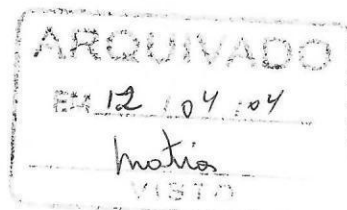 ARQUIVADO
EM 12 / 04 / 04
Matias
VISTO